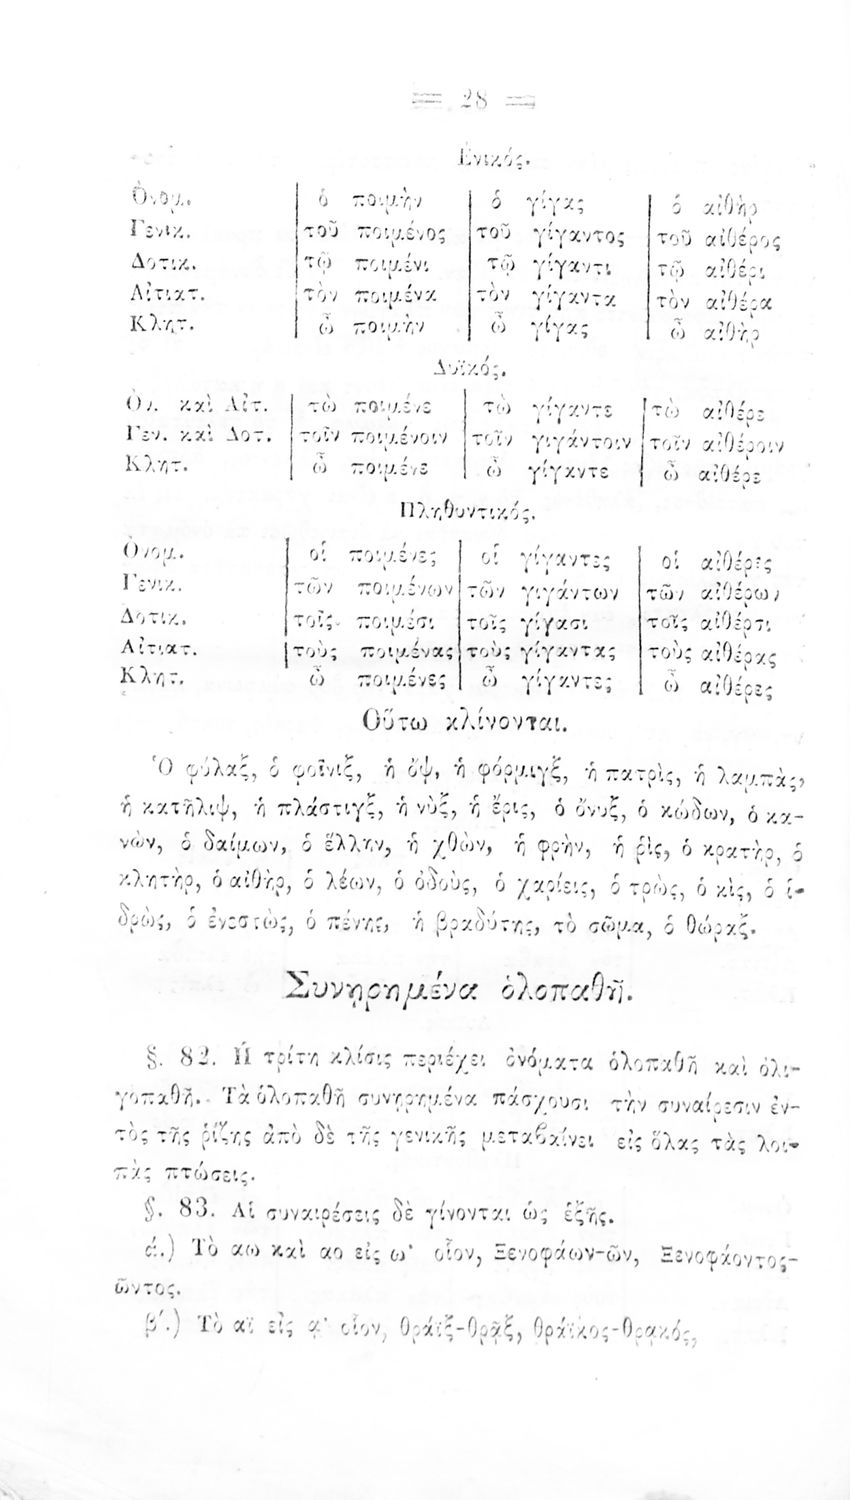 == 28 ==
Ἑνικός.
Ὀνομ. ὁ ποιμὴν ὁ γίγας ὁ αἰθὴρ
Γενικ. τοῦ ποιμένος τοῦ γίγαντος τοῦ αἰθέρος
Δοτικ. τῷ ποιμένι τῷ γίγαντι τῷ αἰθέρι
Αἰτιατ. τὸν ποιμένα τὸν γίγαντα τὸν αἰθέρα
Κλητ. ὦ ποιμὴν ὦ γίγας ὦ αἰθὴρ
Δυϊκός.
Ὀν. καὶ Αἰτ. τὼ ποιμένε τὼ γίγαντε τὼ αἰθέρε
Γεν. καὶ Δοτ. τοῖν ποιμένοιν τοῖν γιγάντοιν τοῖν αἰθέροιν
Κλητ. ὦ ποιμένε ὦ γίγαντε ὦ αἰθέρε
Πληθυντικός.
Ὀνομ. οἱ ποιμένες οἱ γίγαντες οἱ αἰθέρες
Γενικ. τῶν ποιμένων τῶν γιγάντων τῶν αἰθέρων
Δοτικ. τοῖς ποιμέσι τοῖς γίγασι τοῖς αἰθέρσι
Αἰτιατ. τοὺς ποιμένας τοὺς γίγαντας τοὺς αἰθέρας
Κλητ. ὦ ποιμένες ὦ γίγαντες ὦ αἰθέρες
Οὕτω κλίνονται.
Ὁ φύλαξ, ὁ φοῖνιξ, ἡ ὄψ, ἡ φόρμιγξ, ἡ πατρὶς, ἡ λαμπὰς,
ἡ κατῆλιψ, ἡ πλάστιγξ, ἡ νὺξ, ἡ ἔρις, ὁ ὄνυξ, ὁ κώδων, ὁ κα-
νὼν, ὁ δαίμων, ὁ ἕλλην, ἡ χθὼν, ἡ φρὴν, ἡ ῥὶς, ὁ κρατὴρ, ὁ
κλητὴρ, ὁ αἰθὴρ, ὁ λέων, ὁ ὀδοὺς, ὁ χαρίεις, ὁ τρὼς, ὁ κὶς, ὁ ἱ-
δρὼς, ὁ ἐνεστὼς, ὁ πένης, ἡ βραδύτης, τὸ σῶμα, ὁ θώραξ.
Συνῃρημένα ὁλοπαθῆ.
§. 82. Ἡ τρίτη κλίσις περιέχει ὀνόματα ὁλοπαθῆ καὶ ὀλι-
γοπαθῆ. Τὰ ὁλοπαθῆ συνῃρημένα πάσχουσι τὴν συναίρεσιν ἐν-
τὸς τῆς ῥίζης ἀπὸ δὲ τῆς γενικῆς μεταβαίνει εἰς ὅλας τὰς λοι-
πὰς πτώσεις.
§. 83. Αἱ συναιρέσεις δὲ γίνονται ὡς ἑξῆς.
ά.) Τὸ αω καὶ αο εἰς ω· οἷον, Ξενοφάων-ῶν, Ξενοφάοντος-
ῶντος.
β΄.) Τὸ αϊ εἰς ᾳ· οἷον, θράϊξ-θρᾷξ, θράϊκος-θρᾳκός,